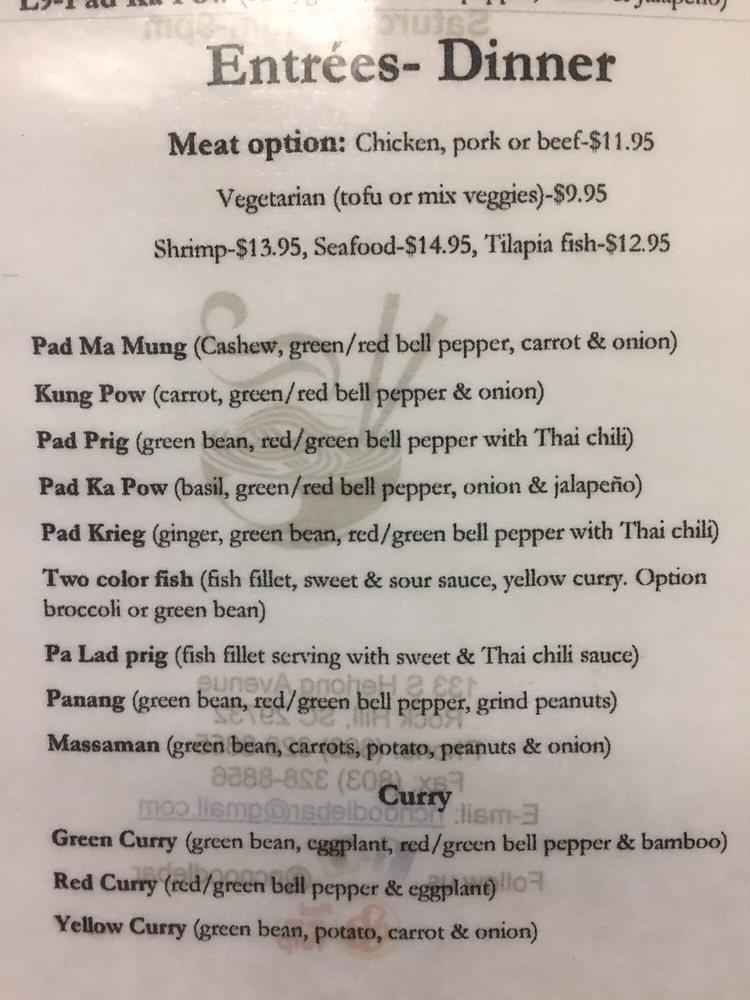 Entrées- Dinner
Meat option: Chicken, pork or beef-$11.95
Vegetarian (tofu or mix veggies)-$9.95
Shrimp-$13.95, Seafood-$14.95, Tilapia fish-$12.95
Pad Ma Mung (Cashew, green/red bell pepper, carrot & onion)
Kung Pow (carrot, green/red bell pepper & onion)
Pad Prig (green bean, red/green bell pepper with Thai chili)
Pad Ka Pow (basil, green/red bell pepper, onion & jalapeño)
Pad Krieg (ginger, green bean, red/green bell pepper with Thai chili)
Two color fish (fish fillet, sweet & sour sauce, yellow curry. Option
broccoli or green bean)
Pa Lad prig (fish fillet serving with sweet & Thai chili sauce)
Panang (green bean, red/green bell pepper, grind peanuts)
Massaman (green bean, carrots, potato, peanuts & onion)
Curry
Green Curry (green bean, eggplant, red/green bell pepper & bamboo)
Red Curry (red/green bell pepper & eggplant)
Yellow Curry (green bean, potato, carrot & onion)